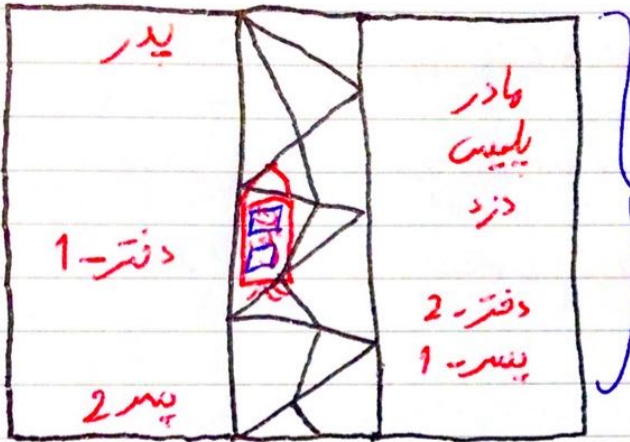 پدر
دفتر-1
پسر 2
مادر
پلیس
دزد
دفتر-2
پسر-1